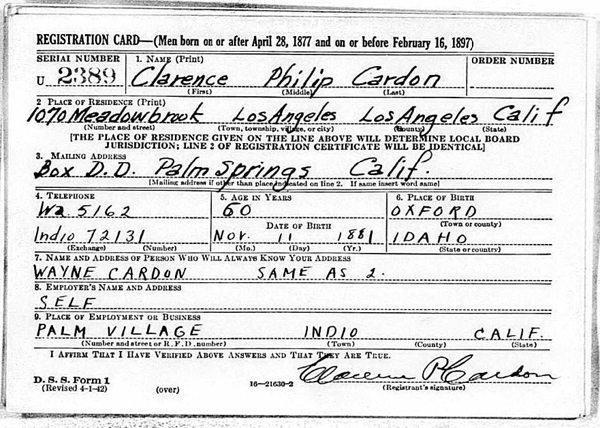 REGISTRATION CARD—(Men born on or after April 28, 1877 and on or before February 16, 1897)
SERIAL NUMBER 1. NAME (Print) ORDER NUMBER
U 2389 Clarence Philip Cardon
(First) (Middle) (Last)
2 PLACE OF RESIDENCE (Print)
1070 Meadowbrook Los Angeles Los Angeles Calif
(Number and street) (Town, township, village, or city) (County) (State)
[THE PLACE OF RESIDENCE GIVEN ON THE LINE ABOVE WILL DETERMINE LOCAL BOARD
JURISDICTION; LINE 2 OF REGISTRATION CERTIFICATE WILL BE IDENTICAL]
3. MAILING ADDRESS
Box D.D. Palm Springs Calif.
[Mailing address if other than place indicated on line 2. If same insert word same]
4. TELEPHONE 5. AGE IN YEARS 6. PLACE OF BIRTH
Wa 5162 60 OXFORD
DATE OF BIRTH (Town or county)
Indio 72131 Nov. 11 1881 IDAHO
(Exchange) (Number) (Mo.) (Day) (Yr.) (State or country)
7. NAME AND ADDRESS OF PERSON WHO WILL ALWAYS KNOW YOUR ADDRESS
WAYNE CARDON SAME AS 2.
8. EMPLOYER'S NAME AND ADDRESS
SELF
9. PLACE OF EMPLOYMENT OR BUSINESS
PALM VILLAGE INDIO CALIF.
(Number and street or R. F. D. number) (Town) (County) (State)
I AFFIRM THAT I HAVE VERIFIED ABOVE ANSWERS AND THAT THEY ARE TRUE.
Clarence P Cardon
D. S. S. Form 1 (Registrant's signature)
(Revised 4-1-42) (over) 16—21630-2